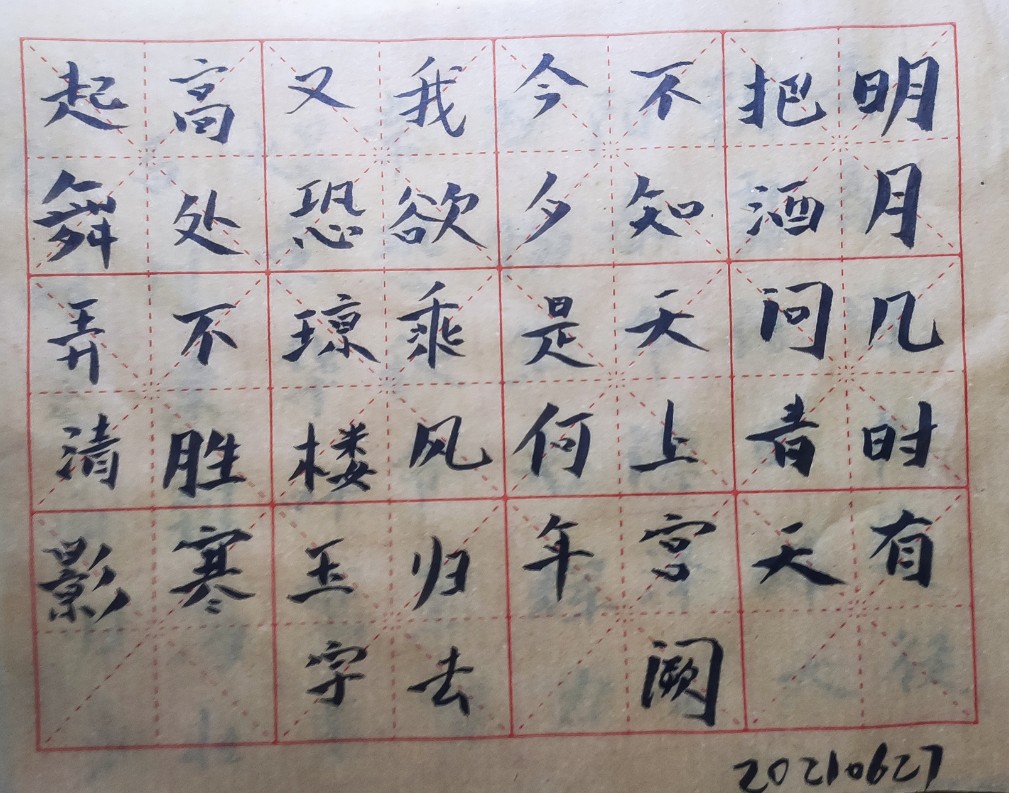 明月几时有
把酒问青天
不知天上宫阙
今夕是何年
我欲乘风归去
又恐琼楼玉宇
高处不胜寒
起舞弄清影
20210627